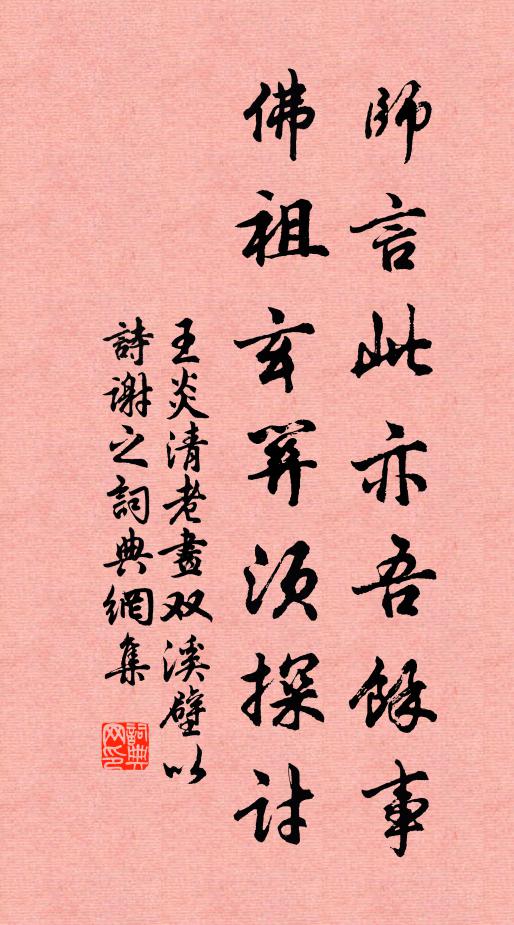 師言此亦吾餘事
佛祖玄關須探討
王炎清老畫双溪壁以
詩謝之詞典網集
詞典
网印